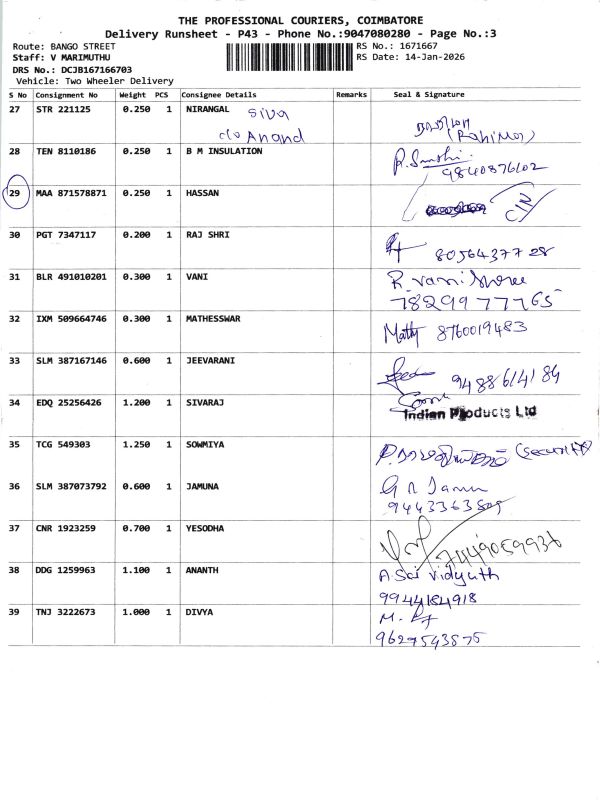 THE PROFESSIONAL COURIERS, COIMBATORE
Delivery Runsheet - P43 - Phone No.:9047080280 - Page No.:3
Route: BANGO STREET RS No.: 1671667
Staff: V MARIMUTHU RS Date: 14-Jan-2026
DRS No.: DCJB167166703
Vehicle: Two Wheeler Delivery
S No Consignment No Weight PCS Consignee Details Remarks Seal & Signature
27 STR 221125 0.250 1 NIRANGAL Siva
c/o Anand
28 TEN 8110186 0.250 1 B M INSULATION
9840876102
29 MAA 871578871 0.250 1 HASSAN
30 PGT 7347117 0.200 1 RAJ SHRI 8056437728
31 BLR 491010201 0.300 1 VANI
7829977765
32 IXM 509664746 0.300 1 MATHESSWAR 8760019483
33 SLM 387167146 0.600 1 JEEVARANI 9488614184
34 EDQ 25256426 1.200 1 SIVARAJ Indian Products Ltd
35 TCG 549303 1.250 1 SOWMIYA (Security)
36 SLM 387073792 0.600 1 JAMUNA
37 CNR 1923259 0.700 1 YESODHA 7449059936
38 DDG 1259963 1.100 1 ANANTH A.Sai Vidyuth
9944184918
39 TNJ 3222673 1.000 1 DIVYA
9627543575